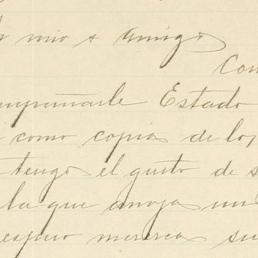 mio & amigo
Con
Estado
como copia de los
tengo el gusto de s
la que arroja un
espero merezca su